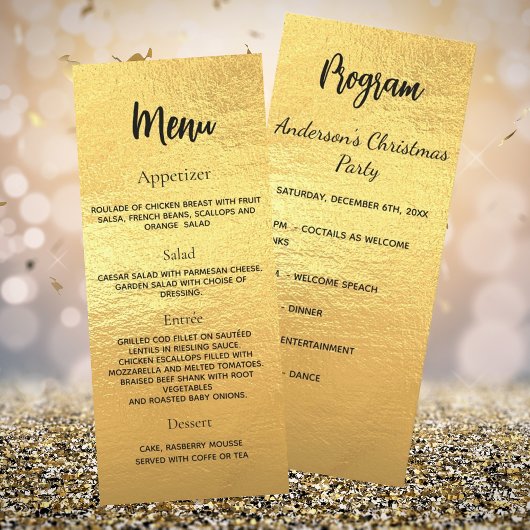 Menu
Appetizer
ROULADE OF CHICKEN BREAST WITH FRUIT
SALSA, FRENCH BEANS, SCALLOPS AND
ORANGE SALAD
Salad
CAESAR SALAD WITH PARMESAN CHEESE,
GARDEN SALAD WITH CHOISE OF
DRESSING.
Entrée
GRILLED COD FILLET ON SAUTÉED
LENTILS IN RIESLING SAUCE
CHICKEN ESCALLOPS FILLED WITH
MOZZARELLA AND MELTED TOMATOES.
BRAISED BEEF SHANK WITH ROOT
VEGETABLES
AND ROASTED BABY ONIONS.
Dessert
CAKE, RASBERRY MOUSSE
SERVED WITH COFFE OR TEA
Program
Anderson's Christmas
Party
SATURDAY, DECEMBER 6TH, 20XX
PM - COCTAILS AS WELCOME
NKS
- WELCOME SPEACH
- DINNER
ENTERTAINMENT
- DANCE